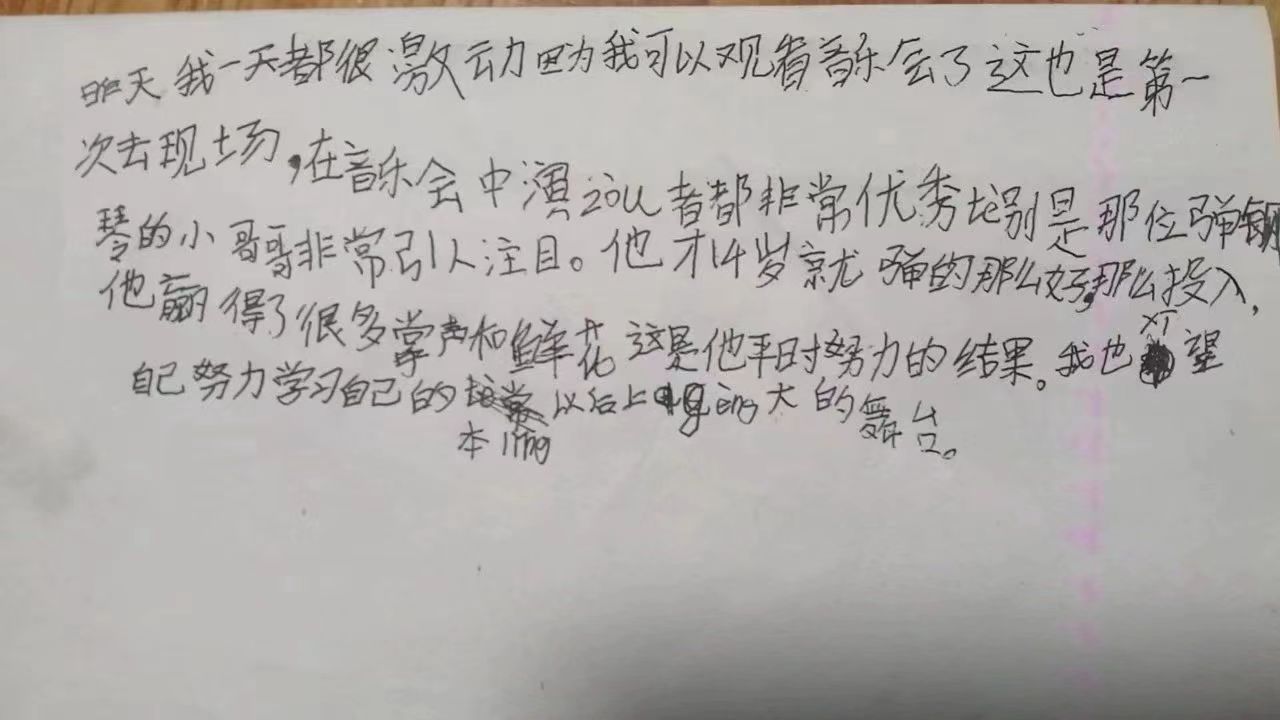 昨天我一天都很激动因为我可以观看音乐会了这也是第一
次去现场,在音乐会中演zou者都非常优秀特别是那位弹钢
琴的小哥哥非常引人注目。他才14岁就弹的那么好,那么投入,
他赢得了很多掌声和鲜花这是他平时努力的结果。我也xi望
自己努力学习自己的本ling以后上geng大的舞台。